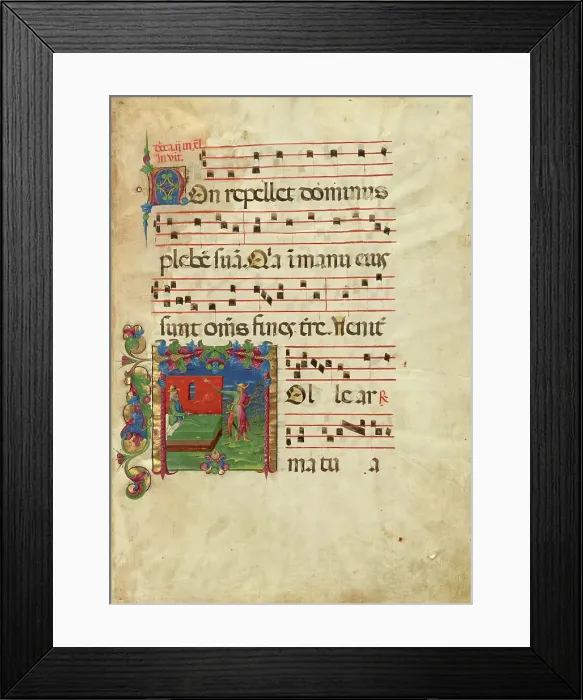 In vit.
Non repellet dominus
plebē suā. Q̄a ī manu eius
sunt om̄s fines tr̄e. Venit
Tol le ar
ma tu a